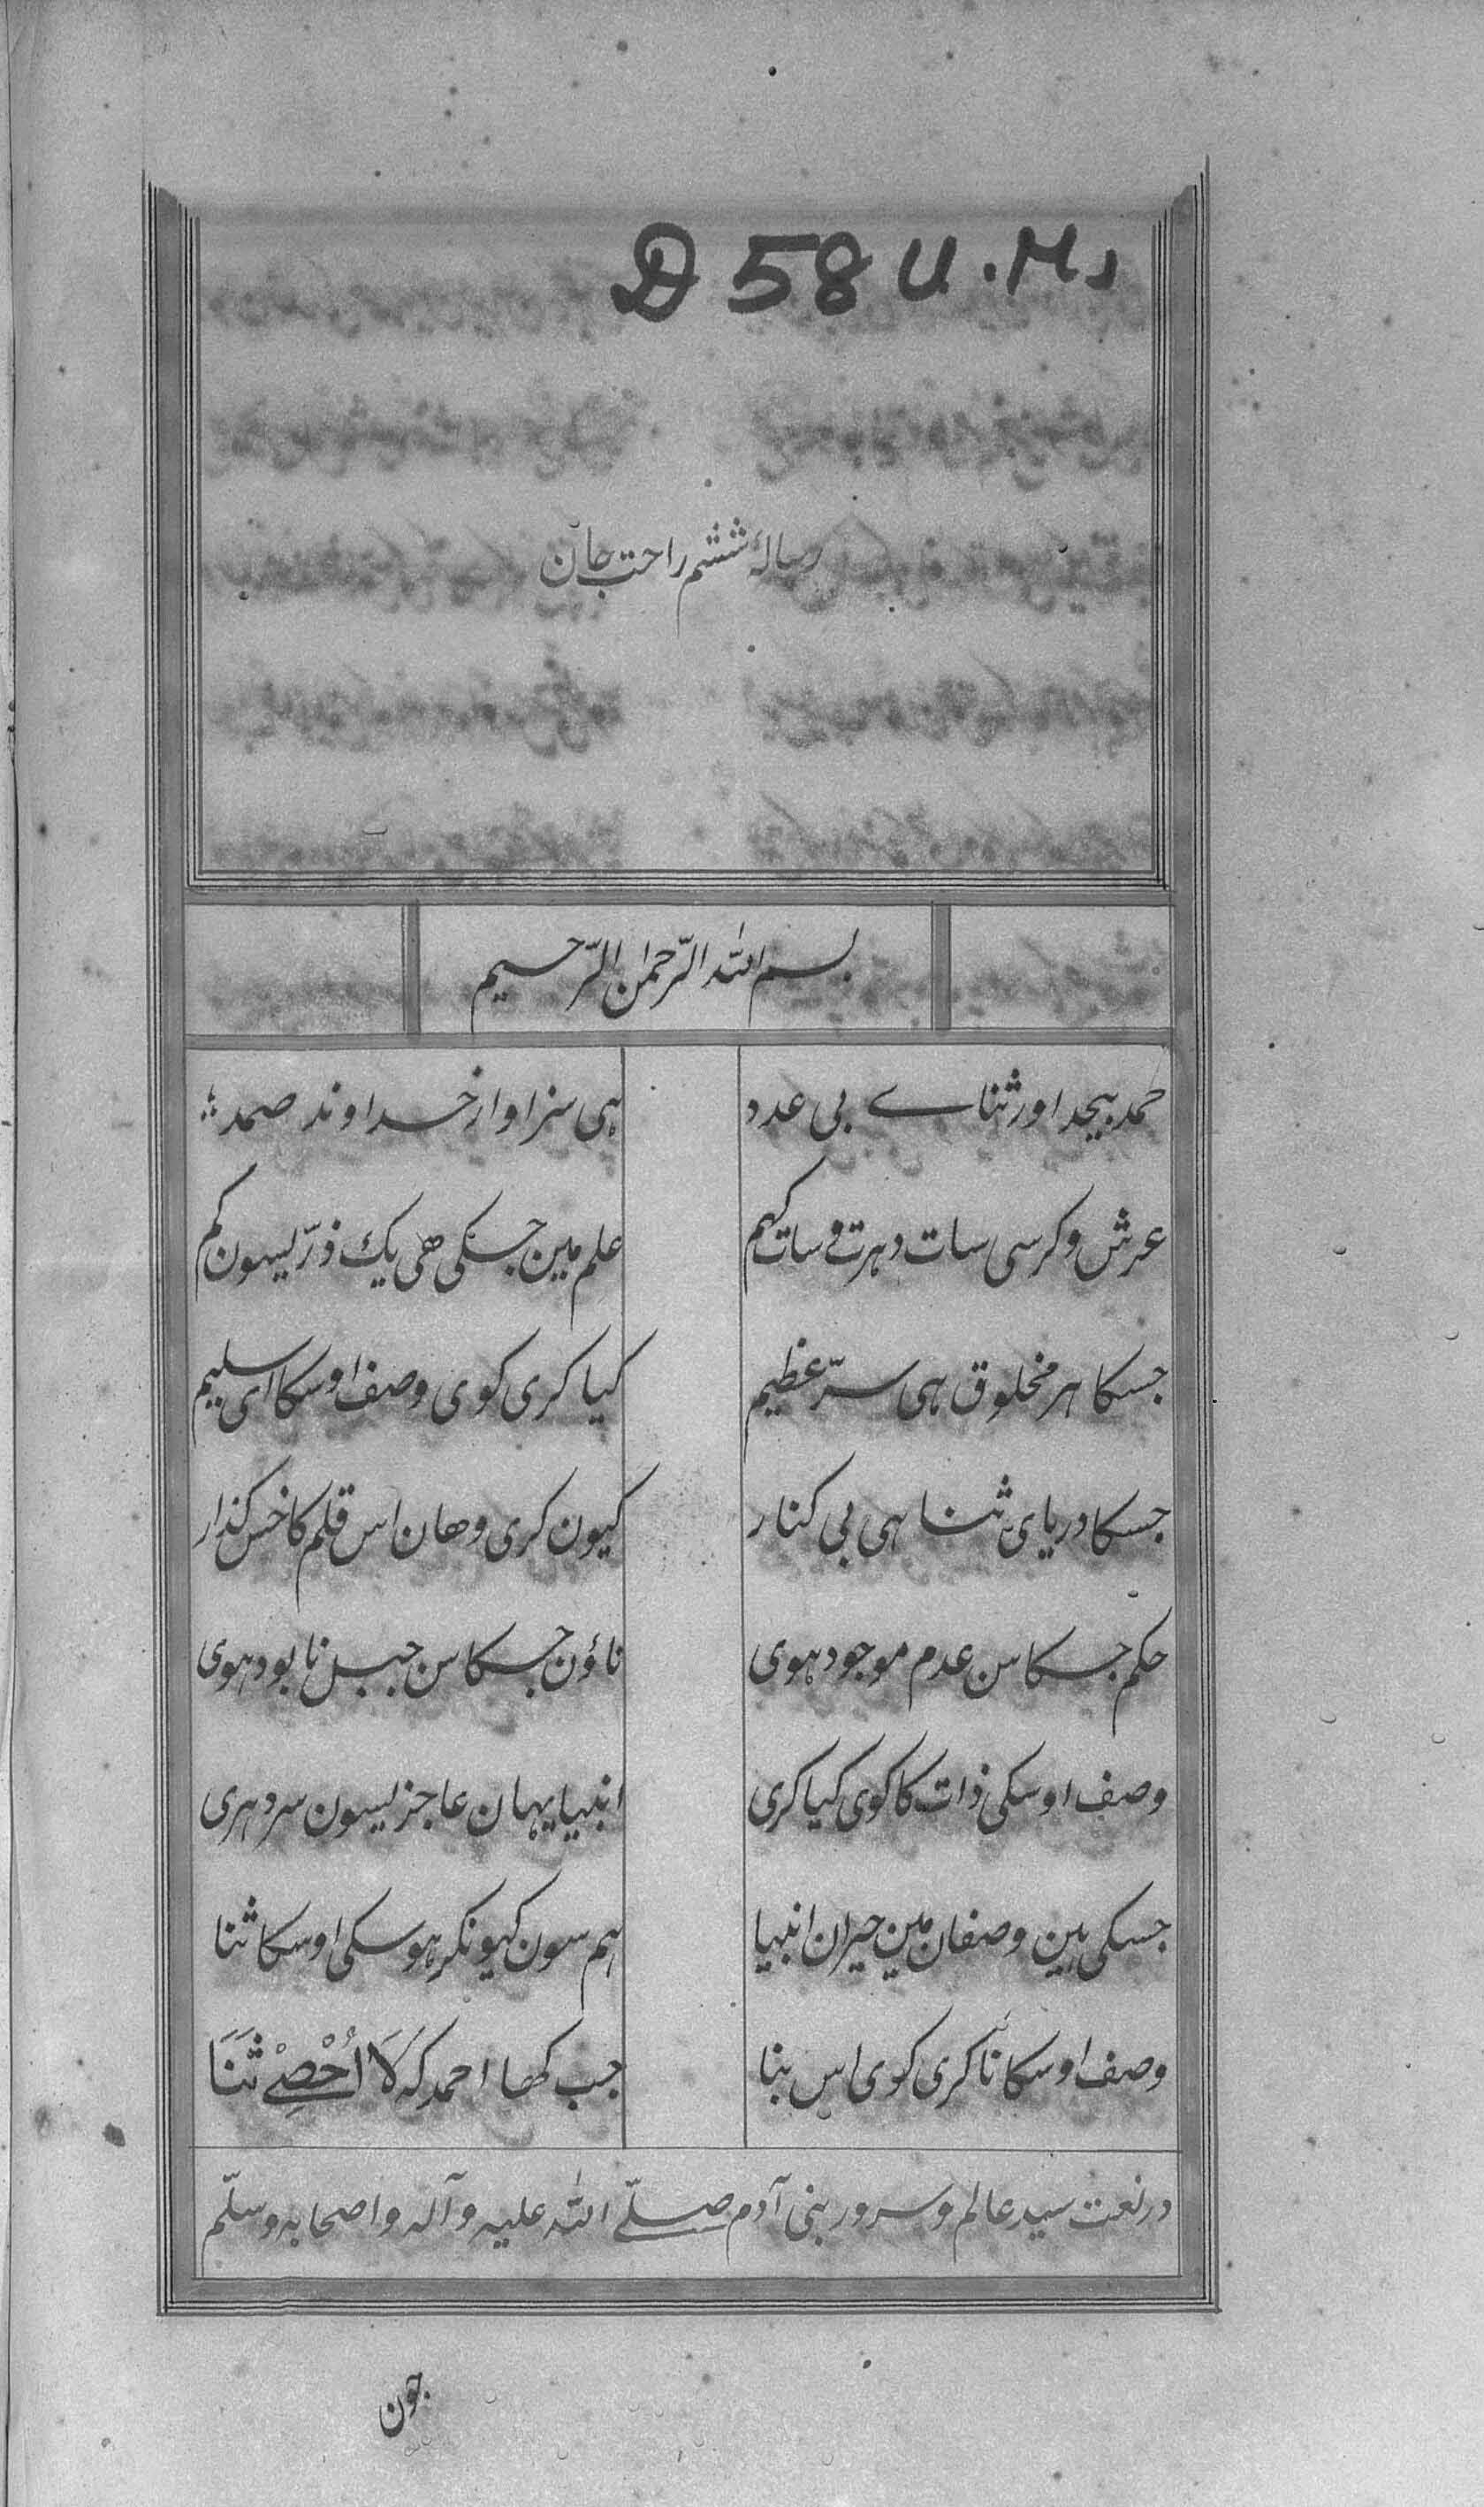 D 58 U. Ms
رسالۂ ششم راحت جان
بسم الله الرّحمٰن الرّحیم
حمد بیحد اور ثناے بی عدد ہی سزاوار خداوند صمد
عرش و کرسی سات دہرت و سات کہم علم مین جسکی ھی یك ذرّیسون کم
جسکا ہر مخلوق ہی سرّ عظیم کیا کری کوی وصف اوسکا ای سلیم
جسکا دریائ ثنا ہی بی کنار کیون کری وھان اس قلم کا خس گذار
حکم جسکا سن عدم موجود ہوی ناؤن جسکا سن جبل نابود ہوی
وصف اوسکی ذات کا کوی کیا کری انبیا یہان عاجزیسون سر دہری
جسکی ہین وصفان مین حیران انبیا ہم سون کیونکر ہوسکی اوسکا ثنا
وصف اوسکا نا کری کوی اس بنا جب کھا احمد کہ لَا اُحْصِےْ ثَنَا
در نعت سید عالم و سرور بنی آدم صلّے اللّٰہ علیہ و آلہ و اصحابہ و سلّم
جون